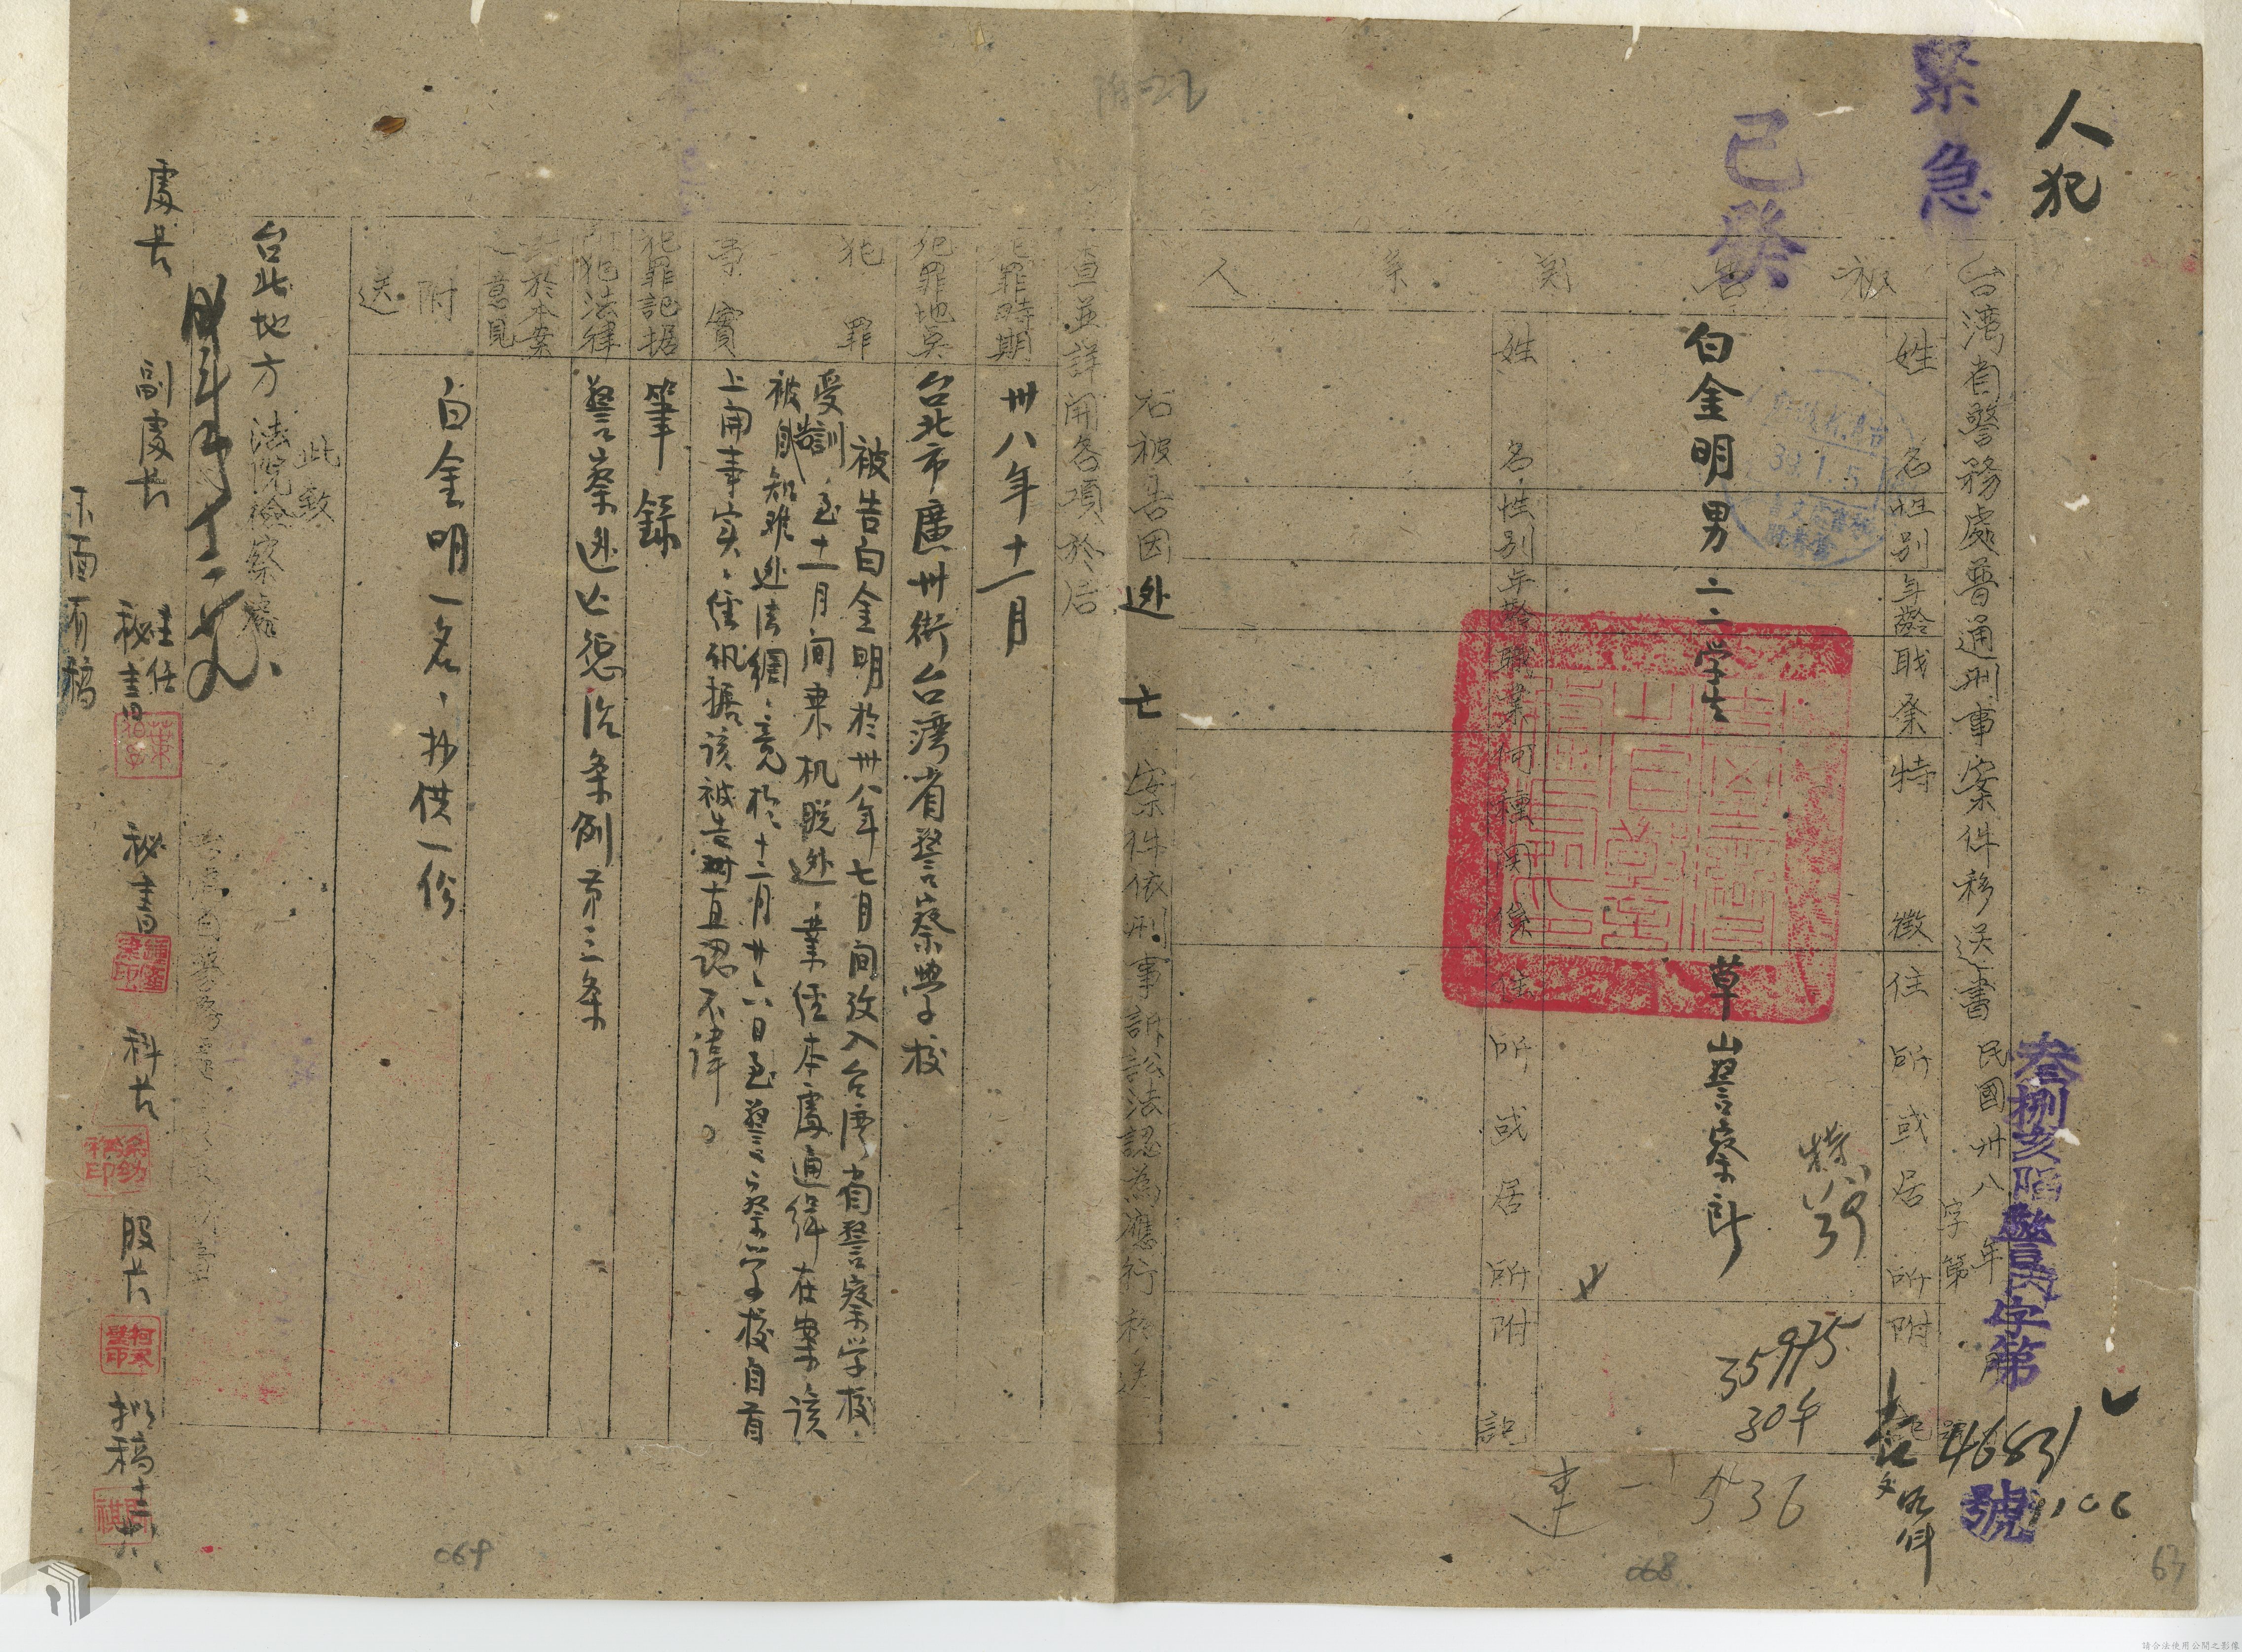 人犯
緊急
已發
叁捌亥陷警丙字第 46831 號
台湾省警務處普通刑事案件移送書 民國卅八年 月
字第
被告
姓名 性别 年齡 職業 特徵 住所或居所 附記
白金明 男 二二 学生 草山警察所
39.1.5
35975
30千
536
関系人
姓名 性别 年齡 職業 何種関係 住所或居所 附記
右被告因逃亡案件依刑事訴訟法認為應行移送
查並詳開各項於后
犯罪時期 卅八年十一月
犯罪地点 台北市廣州街台湾省警察學校
犯罪事實 被告白金明於卅八年七月間攷入台湾省警察学校
受訓，至十一月間乘机脱逃，業經本處通緝在案，該
被告自知难逃法網，竟於十二月廿六日至警察学校自首
上開事实，經訊据該被告坦直認不諱。
犯罪証据 筆錄
所犯法律 警察逃亡惩治条例第三条
對於本案之意見
附送 白金明一名，抄供一份
此致
台北地方法院檢察處
處長 副處長 主任秘書 秘書 科長 股長 拟稿
下面有稿
069
068
67
請合法使用公開之影像